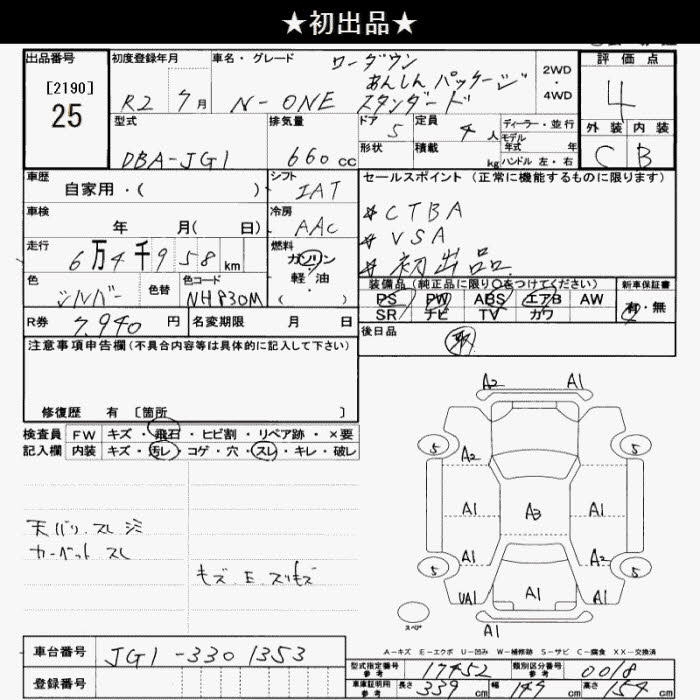 ★初出品★
出品番号
[2190]
25
初度登録年月
R2 7月
車名・グレード
ローダウン
あんしんパッケージ
N-ONE スタンダード
2WD
・
4WD
評価点
4
外装 内装
C B
型式
DBA-JG1
排気量
660cc
ドア 5
定員 4人
形状
積載 kg
ディーラー・並行
モデル
年式 年
ハンドル 左・右
車歴
自家用・( )
シフト
IAT
車検
年 月(日)
冷房
AAC
走行
6万4千958km
燃料
ガソリン
軽・油
( ・ )
色
シルバー
色替
色コード
NH830M
R券 7,940円
名変期限 月 日
セールスポイント(正常に機能するものに限ります)
☆CTBA
☆VSA
☆初出品
装備品(純正品に限り○をつけてください)
PS PW ABS エアB AW
SR ナビ TV カワ
新車保証書
有・無
後日品
取
注意事項申告欄(不具合内容等は具体的に記入して下さい)
修復歴 有〔箇所 〕
検査員
記入欄
FW キズ・飛石・ヒビ割・リペア跡・×要
内装 キズ・汚レ・コゲ・穴・スレ・キレ・破レ
天バリ スレ
カーペット スレ
キズ E スリキズ
A2 A1
5 5
A2
A1 A3 A1
A1 A2
5 5
UA1 A1 A1
スペア
A1
A-キズ E-エクボ U-凹み W-補修跡 S-サビ C-腐食 XX-交換済
車台番号 JG1-3301353
登録番号
型式指定番号
参考 17452
類別区分番号
参考 0018
車庫証明用
参考
長さ 339cm 幅 147cm 高さ 154cm